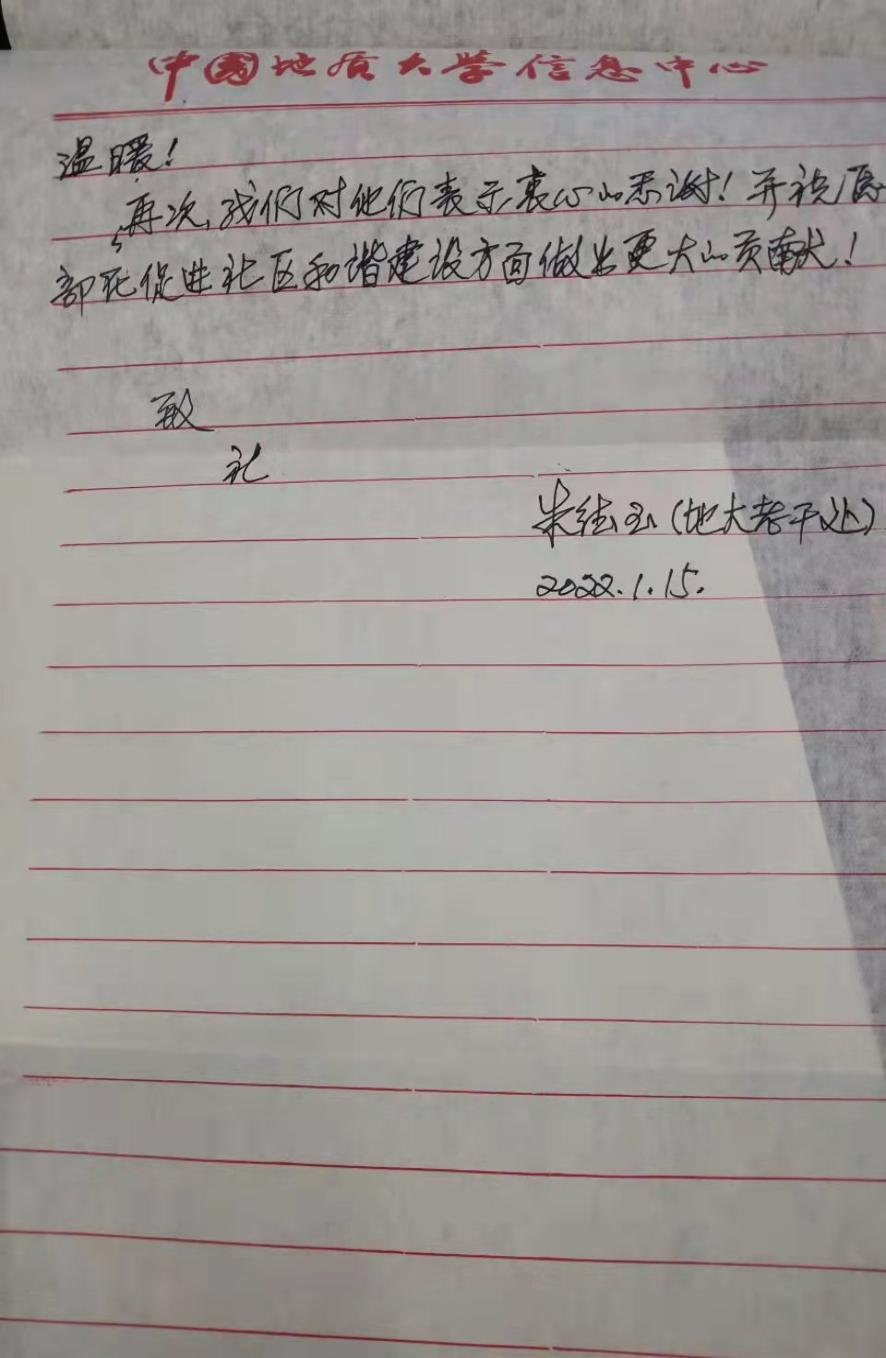 中国地质大学信息中心
温暖!
再次,我们对他们表示衷心的感谢!并祝
部在促进社区和谐建设方面做出更大的贡献!
致
礼
朱 玉(地大老干处)
2022.1.15.